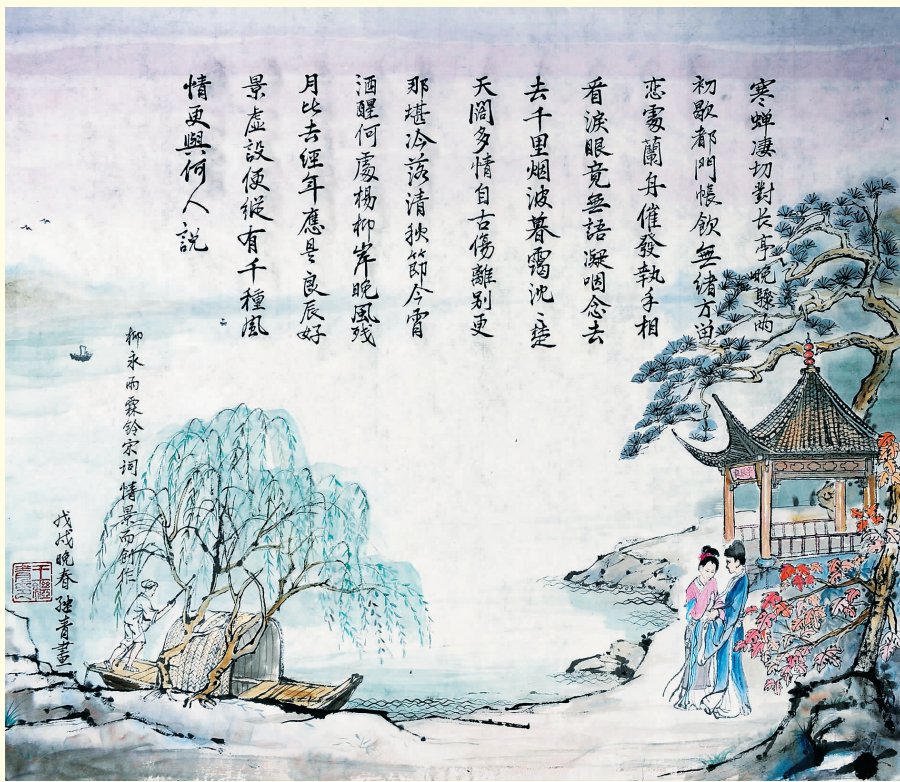 寒蝉凄切對长亭晚驟雨
初歇都門帳飲無緒方畄
恋處蘭舟催發執手相
看淚眼竟無語凝咽念去
去千里烟波暮靄沈〻楚
天阔多情自古傷離別更
那堪冷落清秋節今宵
酒醒何處楊柳岸晚風残
月此去經年應是良辰好
景虚設便縱有千種風
情更與何人說
柳永雨霖鈴宋词情景而創作
戊戌晚春继青畫